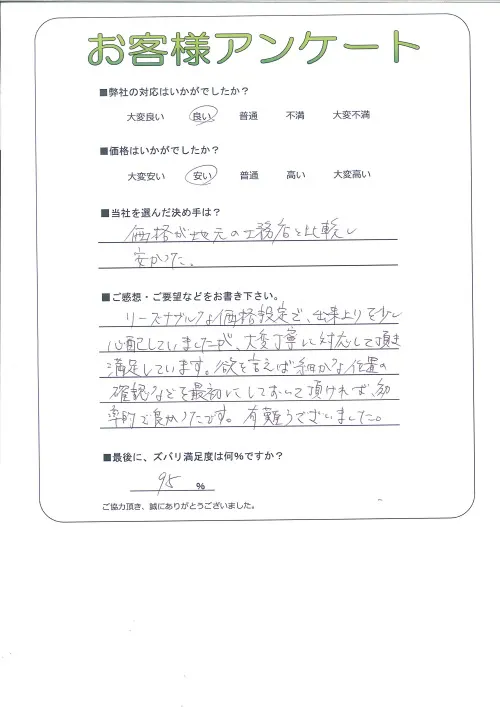 お客様アンケート
■弊社の対応はいかがでしたか？
大変良い　良い　普通　不満　大変不満
■価格はいかがでしたか？
大変安い　安い　普通　高い　大変高い
■当社を選んだ決め手は？
価格が地元の工務店と比較し
安かった。
■ご感想・ご要望などをお書き下さい。
リーズナブルな価格設定で、出来上りを少し
心配していましたが、大変丁寧に対応して頂き
満足しています。欲を言えば細かな位置の
確認などを最初にしておいて頂ければ、効
率的で良かったです。有難うございました。
■最後に、ズバリ満足度は何％ですか？
95 ％
ご協力頂き、誠にありがとうございました。